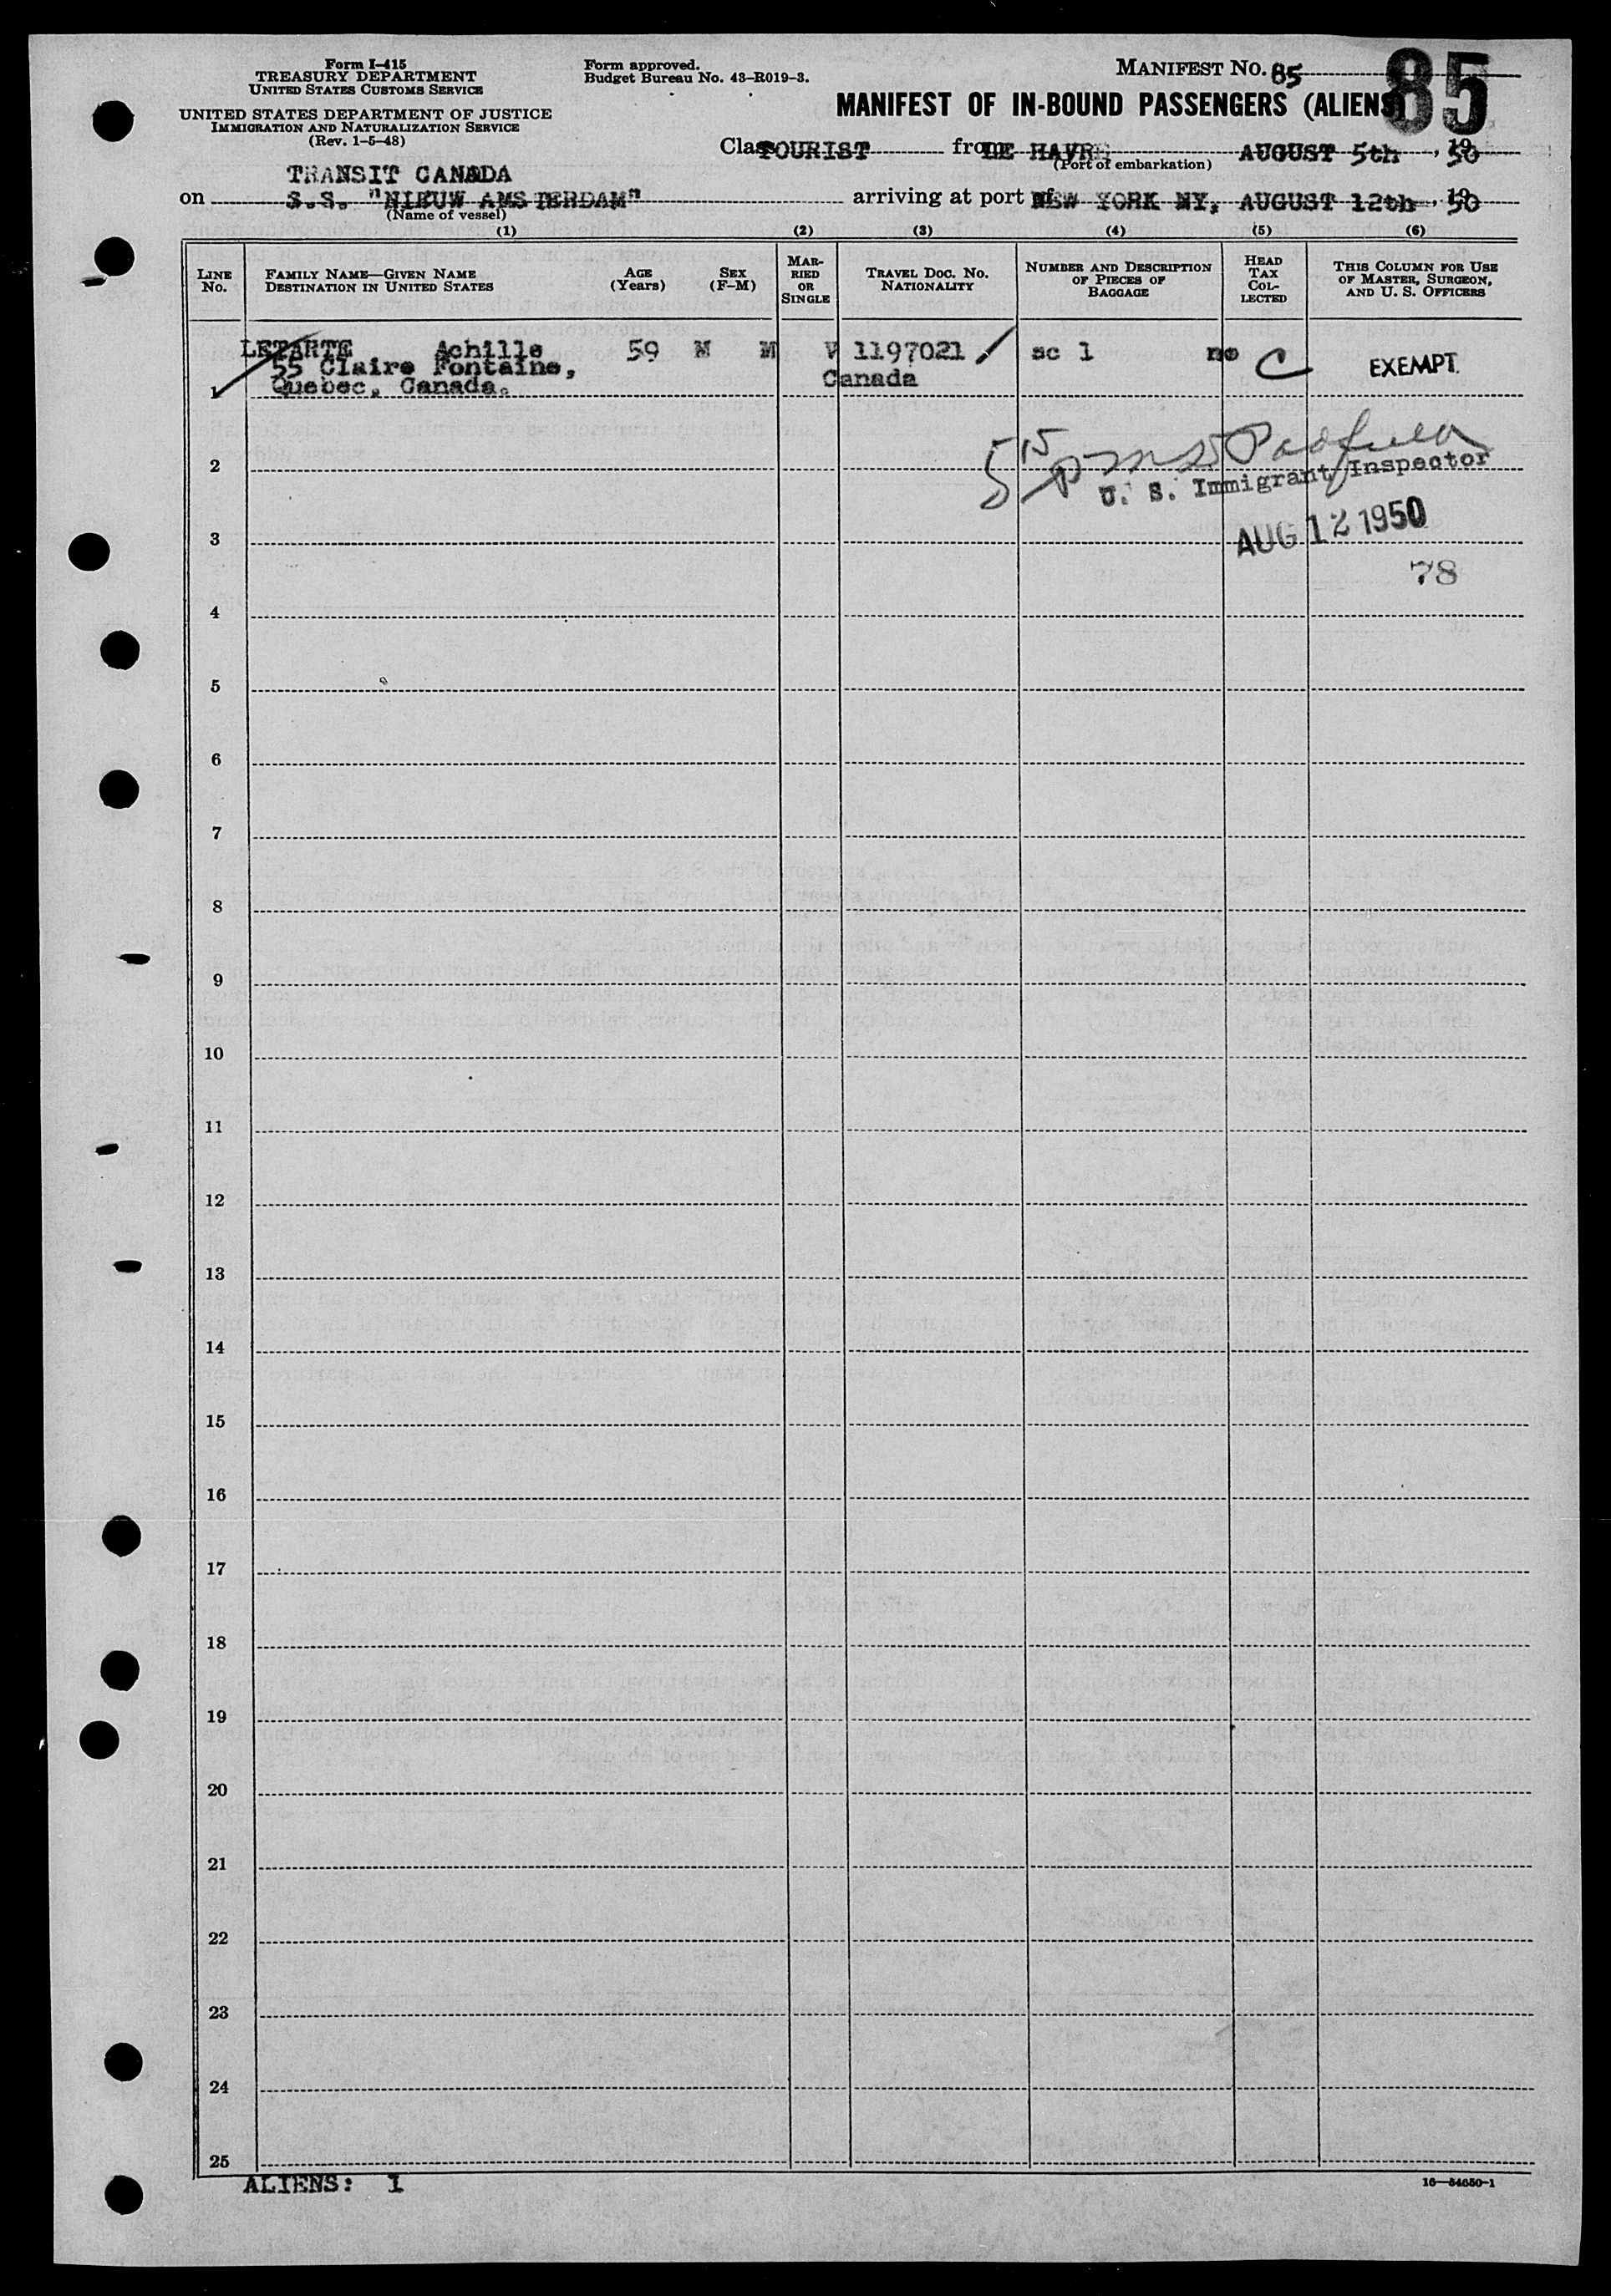 Form I-415
TREASURY DEPARTMENT
UNITED STATES CUSTOMS SERVICE
UNITED STATES DEPARTMENT OF JUSTICE
IMMIGRATION AND NATURALIZATION SERVICE
(Rev. 1-5-48)
Form approved.
Budget Bureau No. 43-R019-3.
MANIFEST NO. 85
85
MANIFEST OF IN-BOUND PASSENGERS (ALIENS)
Class TOURIST from LE HAVRE AUGUST 5th, 1950
(Port of embarkation)
TRANSIT CANADA
on S.S. "NIEUW AMSTERDAM" arriving at port of NEW YORK NY, AUGUST 12th, 1950
(Name of vessel)
(1) (2) (3) (4) (5) (6)
LINE No.
FAMILY NAME—GIVEN NAME
DESTINATION IN UNITED STATES
AGE (Years)
SEX (F-M)
MARRIED OR SINGLE
TRAVEL DOC. NO.
NATIONALITY
NUMBER AND DESCRIPTION OF PIECES OF BAGGAGE
HEAD TAX COLLECTED
THIS COLUMN FOR USE OF MASTER, SURGEON, AND U. S. OFFICERS
LETARTE Achille 59 M M V 1197021 sc 1 no C EXEMPT.
55 Claire Fontaine, Canada
1 Quebec, Canada.
2
515pm
U. S. Immigrant Inspector
3
AUG 12 1950
78
4
5
6
7
8
9
10
11
12
13
14
15
16
17
18
19
20
21
22
23
24
25
ALIENS: 1
16—54650-1